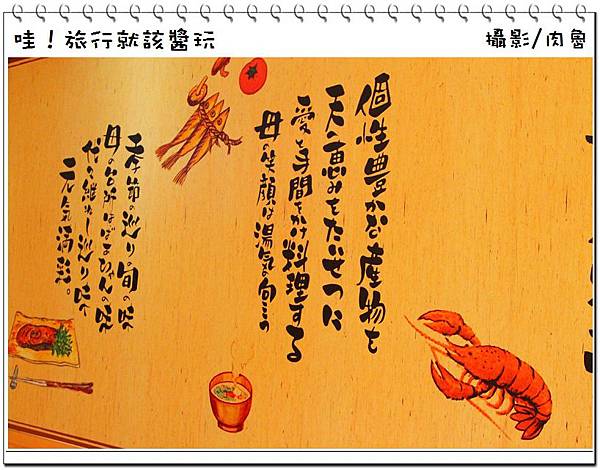 哇！旅行就該醬玩
攝影/肉魯
個性豊かな産物を
天の恵みをたいせつに
愛と手間をかけ料理する
母の笑顔は湯気の向こう
季節の巡りの旬の味
母の台所はばあちゃんの味
代々継がれし巡り味
元気満彩。